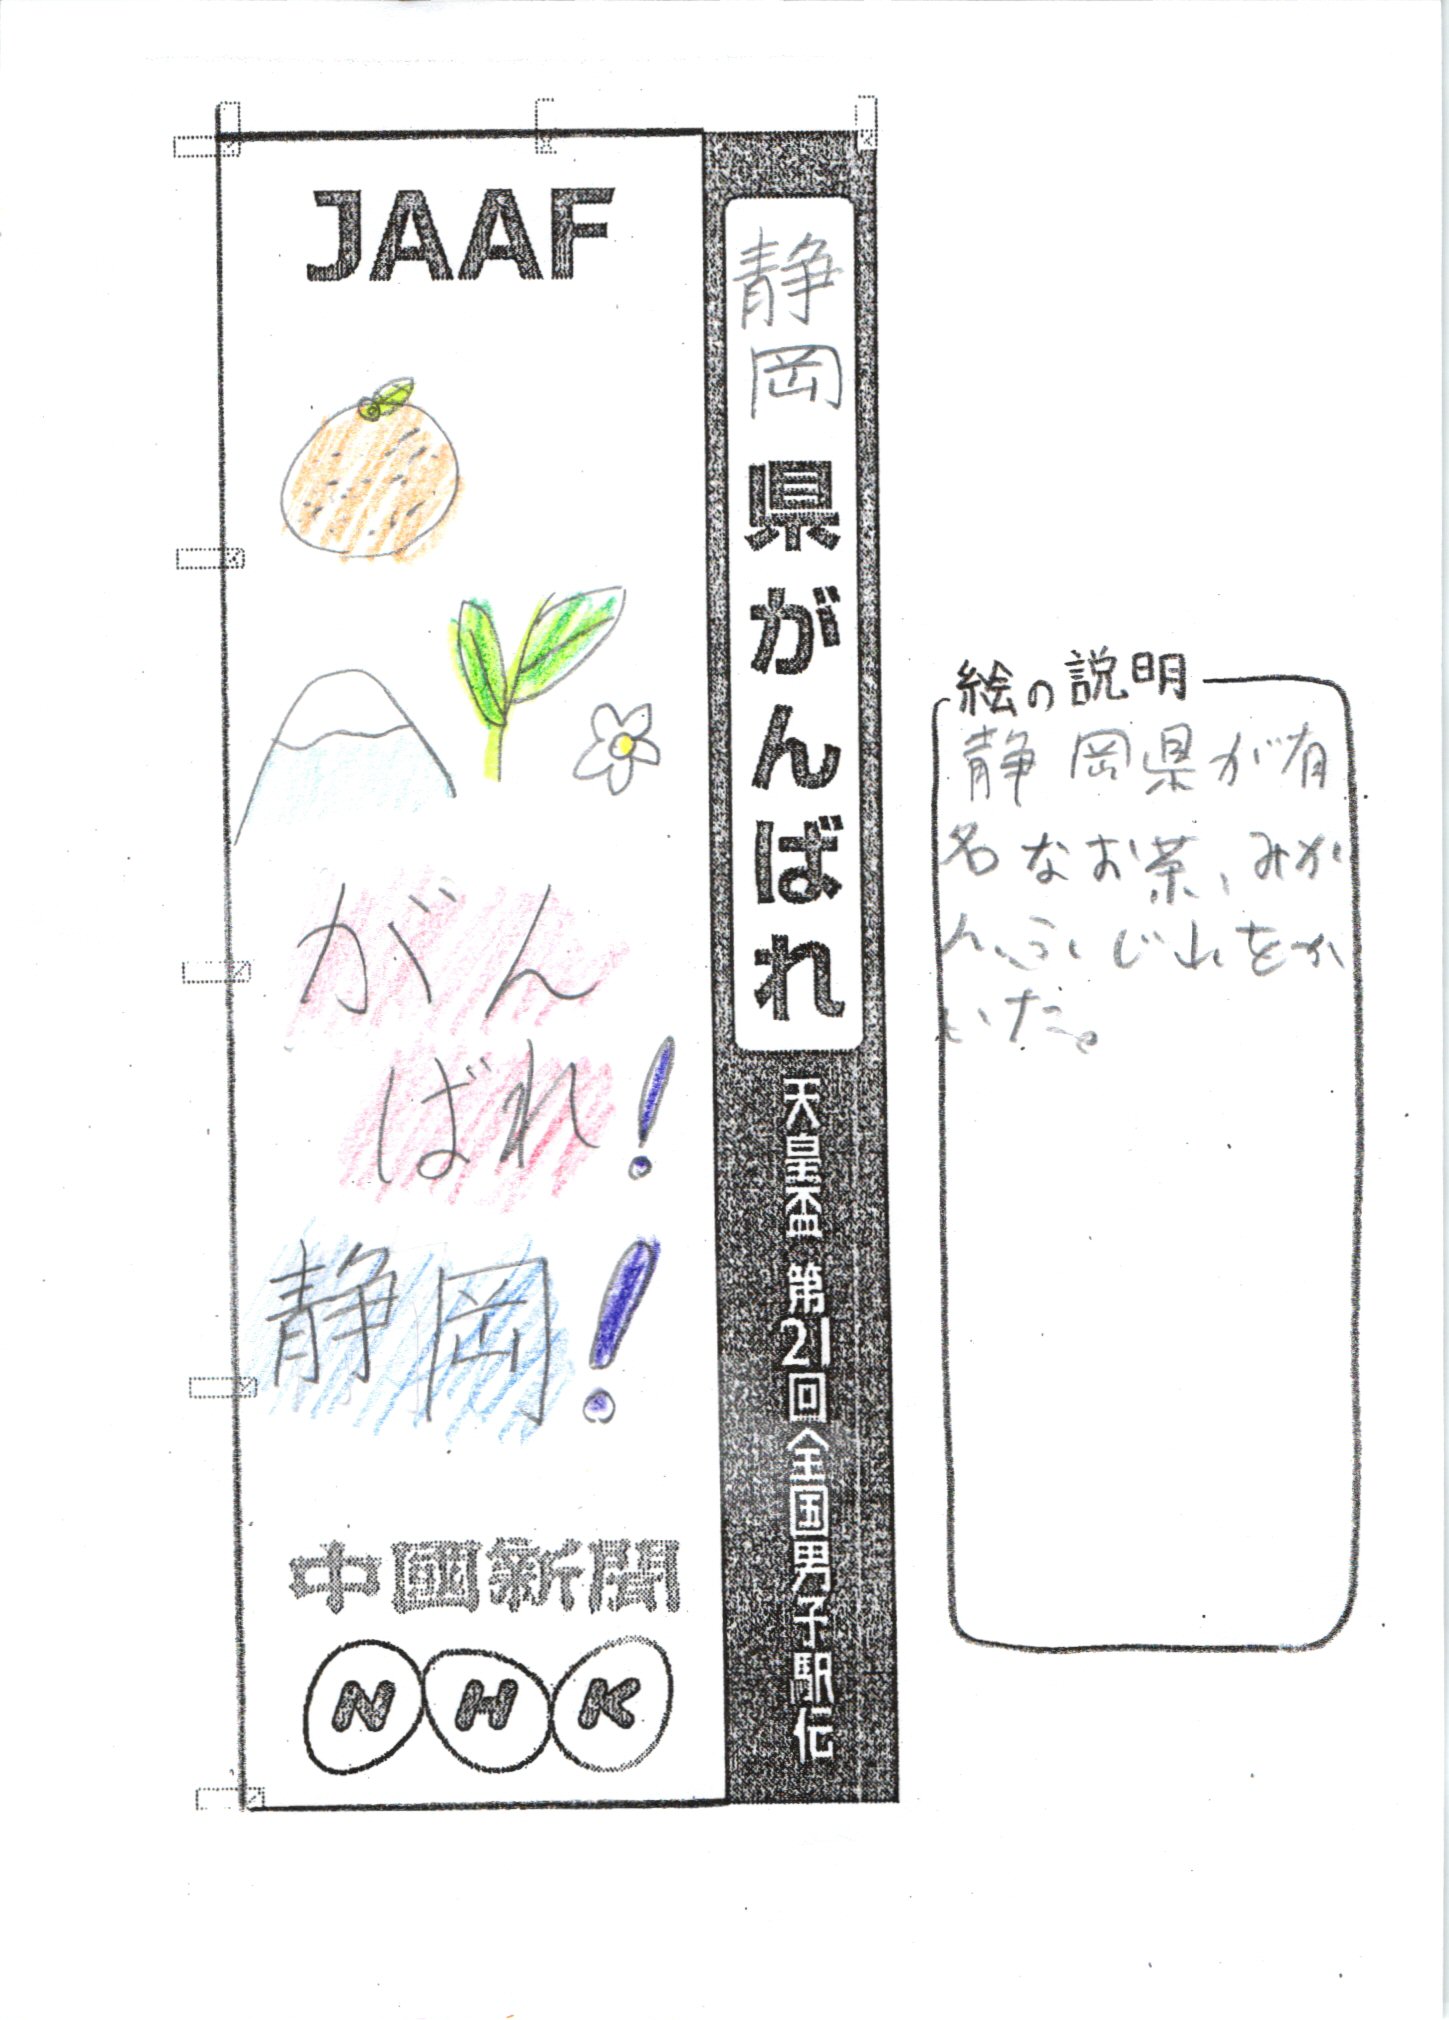 JAAF
がん
ばれ!
静岡!
中國新聞
NHK
静岡県がんばれ
天皇盃 第21回全国男子駅伝
絵の説明
静岡県が有
名なお茶、みか
ん、ふじ山をか
いた。